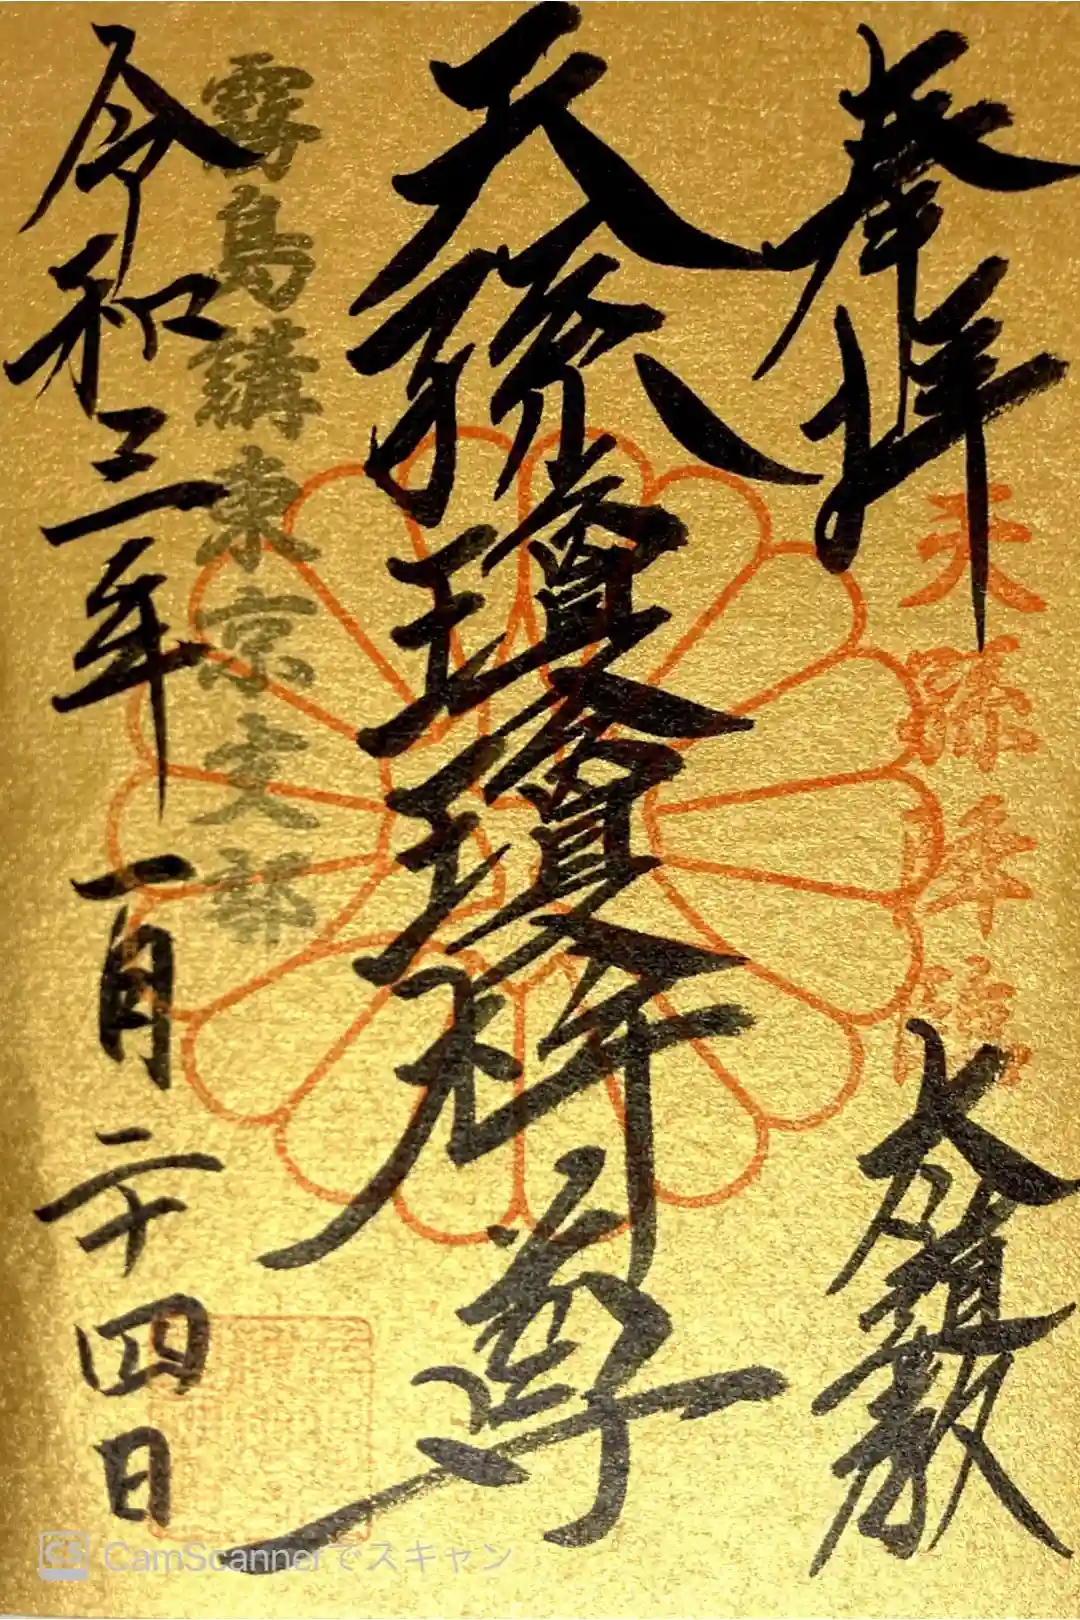 奉拝
天孫降臨
大願成就
天孫瓊瓊杵尊
霧島講東京支部
令和三年一月二十四日
CamScannerでスキャン